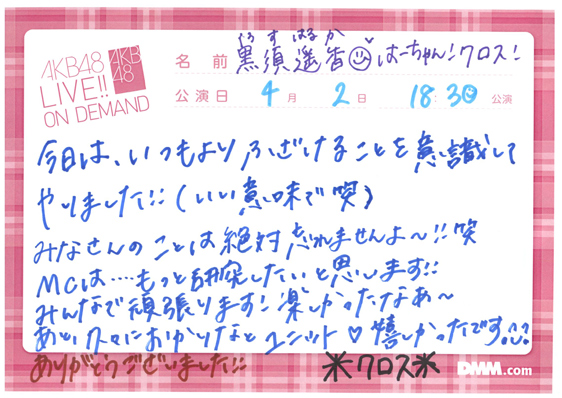 AKB48
LIVE!!
ON DEMAND
AKB
48
くろ す はる か
名前 黒須遥香 はーちゃん!クロス!
公演日 4月 2日 18:30 公演
今日は、いつもよりふざけることを意識して
やりました!!(いい意味で笑)
みなさんのことは絶対忘れませんよ〜!!笑
MCは…もっと研究したいと思います!!
みんなで頑張ります!楽しかったなぁ〜
あと、久々におかりなとユニット♡嬉しかったです!!
ありがとうございました!!
*クロス*
DMM.com